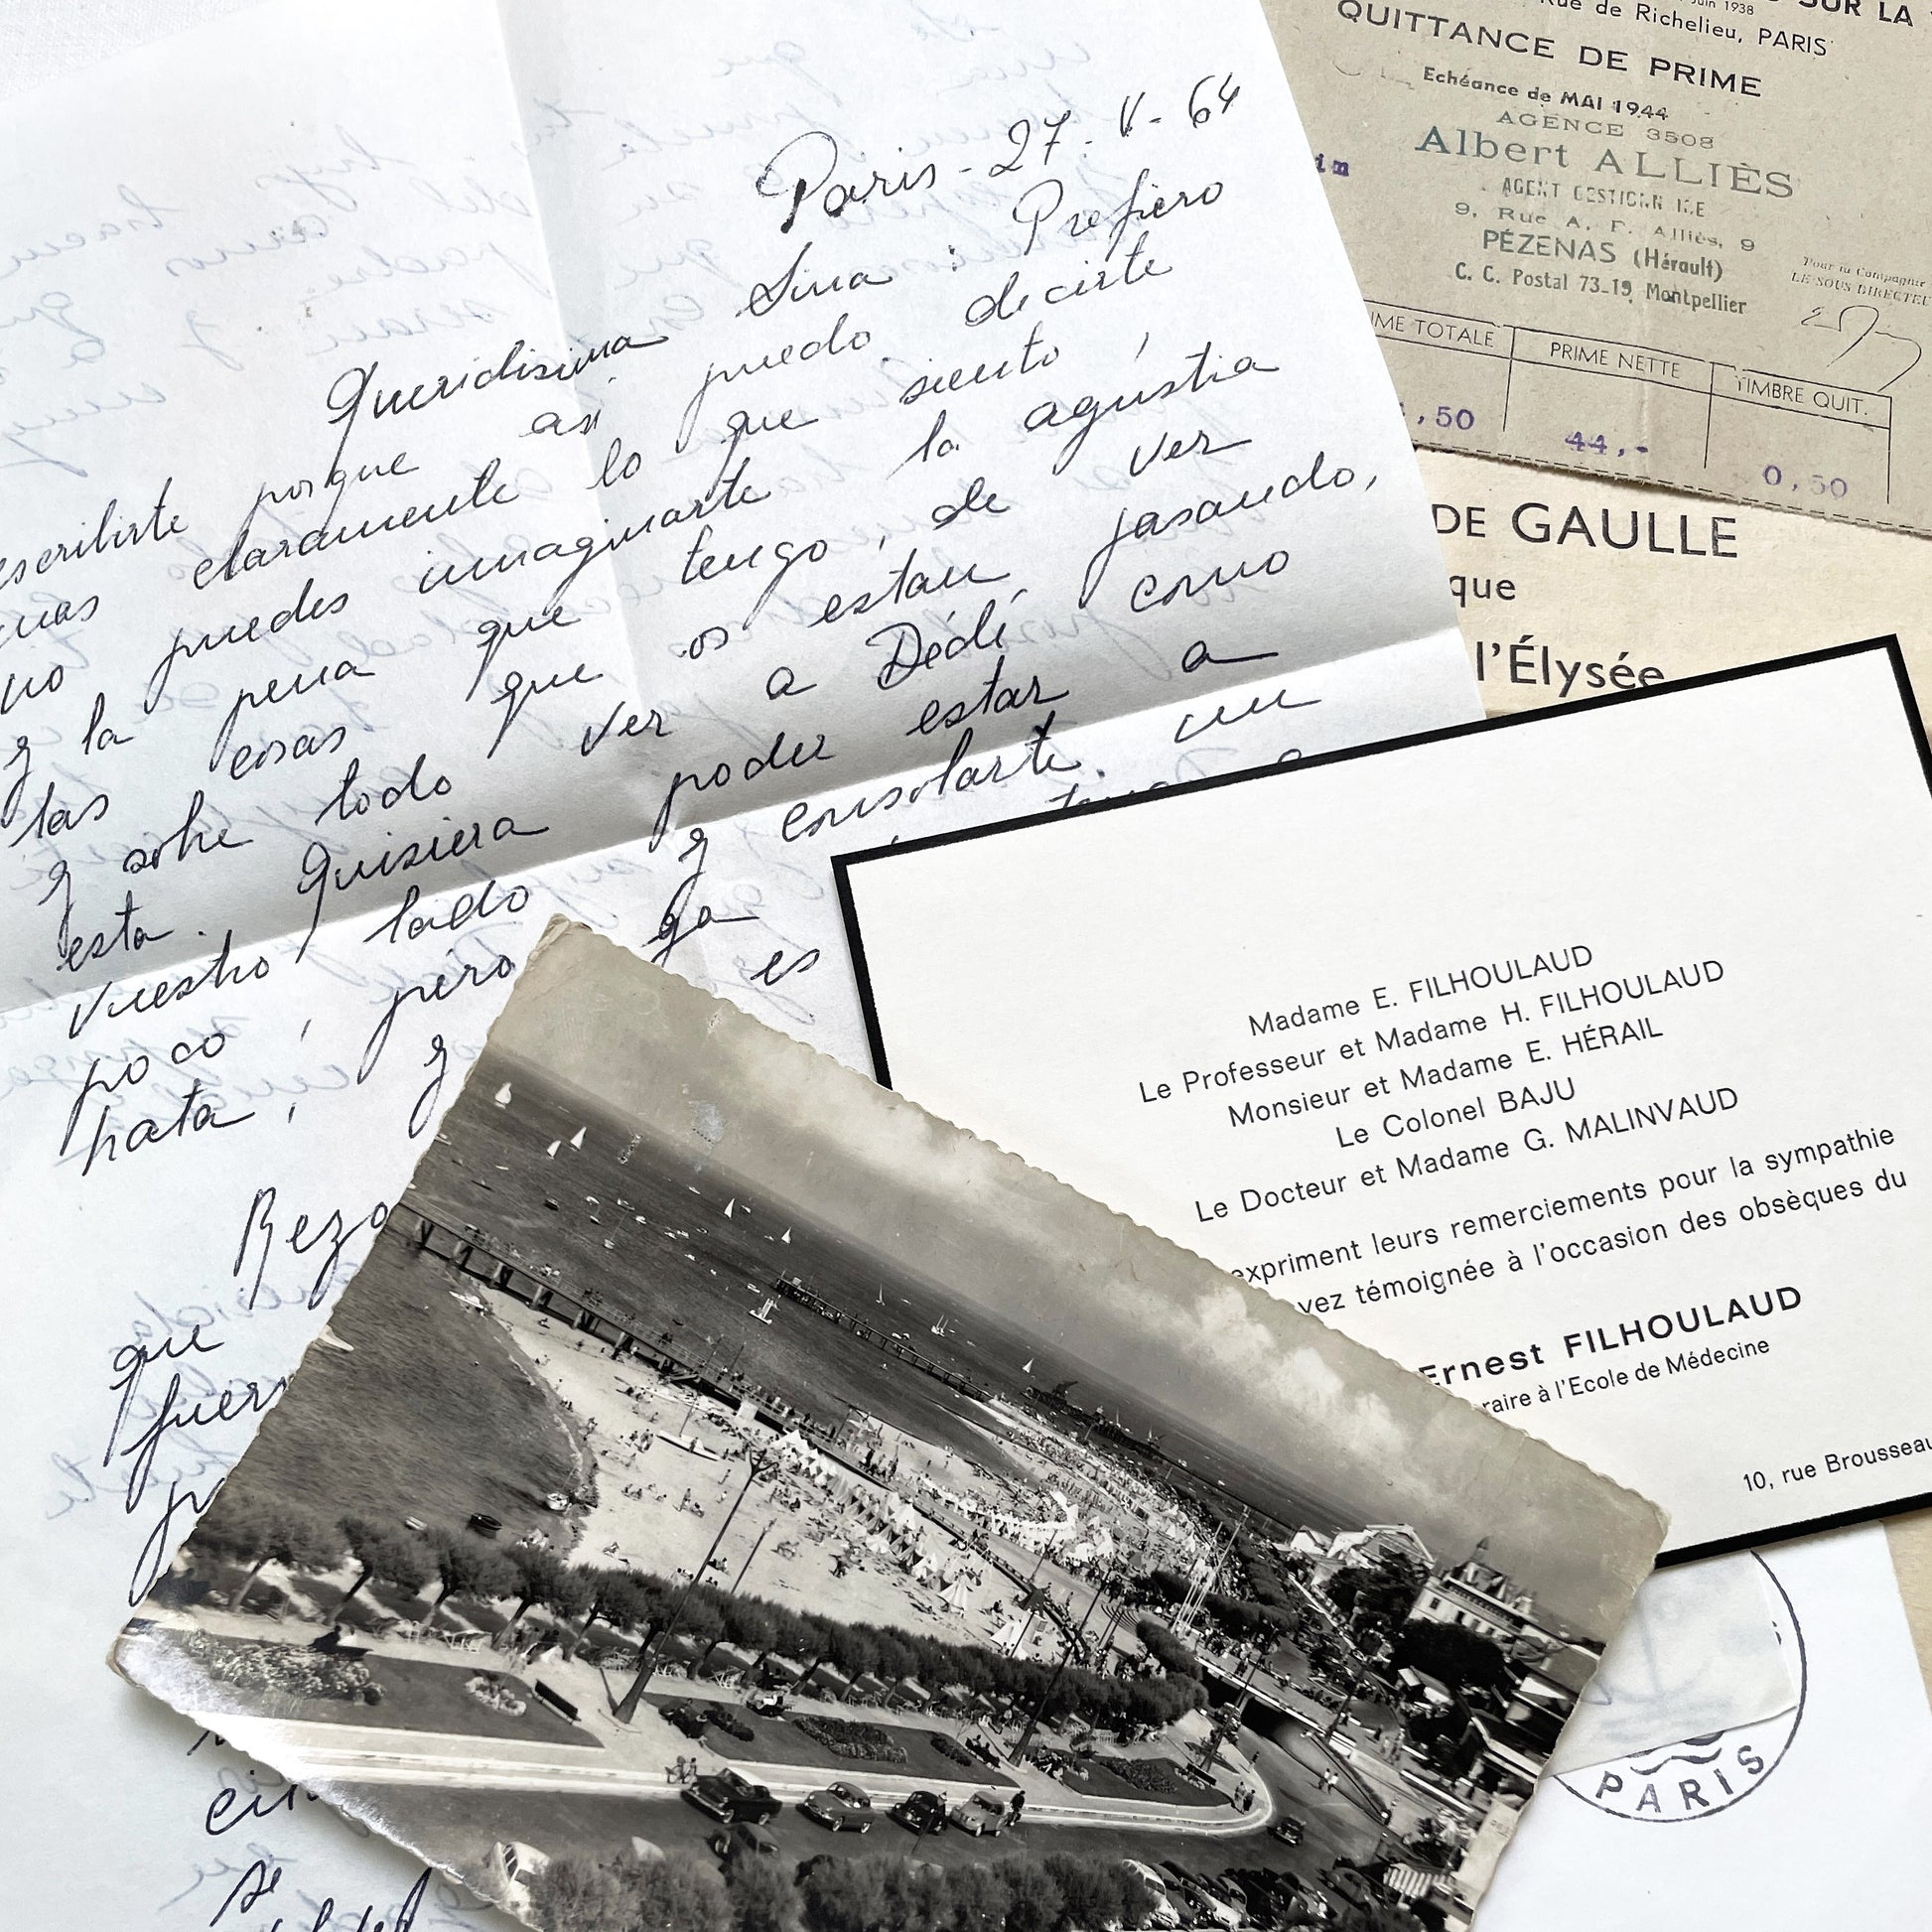 Paris - 27 - V - 64
Queridisima Lina : Prefiero
escribirte porque asi puedo decirte
claramente lo que siento ,
no puedes imaginarte la agustia
y la pena que tengo , de ver
las cosas que os estan pasando,
y sobre todo ver a Dédé como
esta. Quisiera poder estar a
vuestro lado y consolarte. un
poco , pero ya
es
y
que
se
SUR LA
Juin 1938
Rue de Richelieu, PARIS
QUITTANCE DE PRIME
Echéance de MAI 1944
AGENCE 3508
Albert ALLIÈS
9, Rue A. F. Alliès, 9
PÉZENAS (Hérault)
C. C. Postal 73-19, Montpellier
Pour la Compagnie
LE SOUS DIRECTEUR
TOTALE
PRIME NETTE
TIMBRE QUIT.
,50
44,-
0,50
DE GAULLE
que
l'Élysée
Madame E. FILHOULAUD
Le Professeur et Madame H. FILHOULAUD
Monsieur et Madame E. HÉRAIL
Le Colonel BAJU
Le Docteur et Madame G. MALINVAUD
expriment leurs remerciements pour la sympathie
vez témoignée à l'occasion des obsèques du
Ernest FILHOULAUD
raire à l'Ecole de Médecine
10, rue Brousseau
PARIS